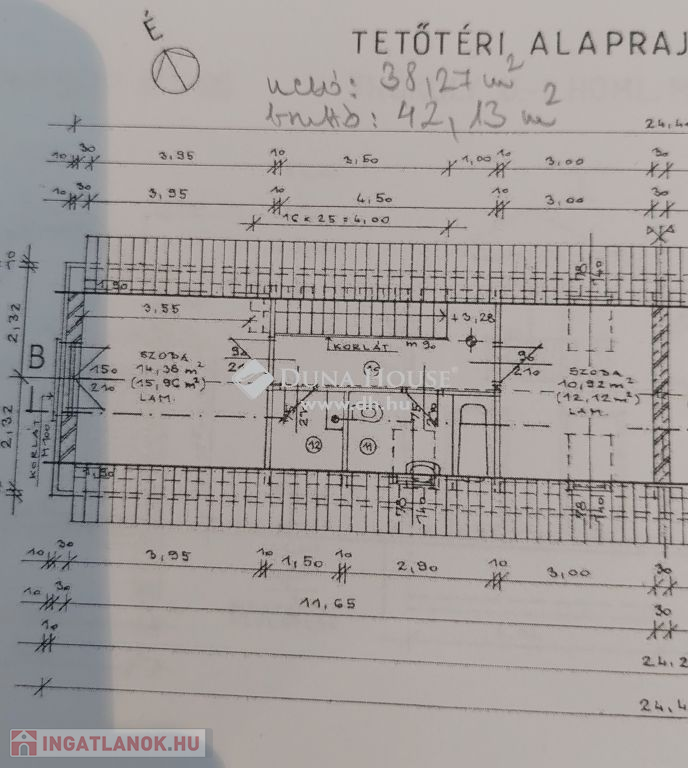 É
TETŐTÉRI ALAPRAJ
nettó: 38,27 m²
bruttó: 42,13 m²
24,4
10 30 3,95 10 3,50 1,00 10 3,00 30
10 30 3,95 10 4,50 10 3,00 30
16 x 25 = 4,00
10
2,32
2,32
1,90
78
140
3,55
+3,28
KORLÁT m 90
B
150
210
SZOBA
14,36 m²
(15,96 m²)
LAM.
90
15
90
210
SZOBA
10,92 m²
(12,12 m²)
LAM.
DUNA HOUSE
www.dh.hu
75
210
75
210
12
11
KORLÁT
M 100
1,90
78
140
78
140
10 30 3,95 10 1,50 10 2,90 10 3,00 30
10 30 11,65 30
10 24,2
24,4
INGATLANOK.HU